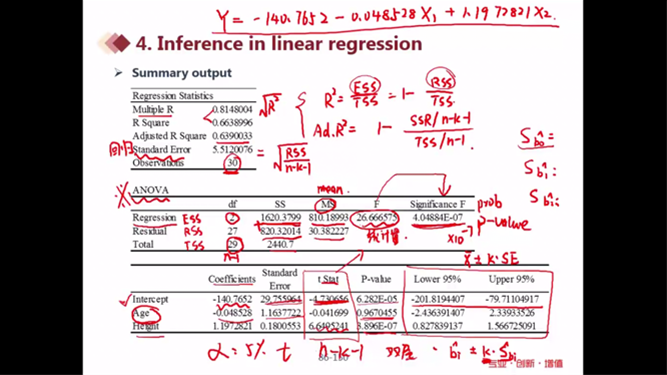 Y = -140.7652 - 0.048528 X1 + 1.1972821 X2.
4. Inference in linear regression
➤ Summary output
Regression Statistics
Multiple R 0.8148004 √R²
R Square 0.6638996
Adjusted R Square 0.6390033
回归 Standard Error 5.5120076 = √(RSS/n-k-1)
Observations 30
R² = ESS/TSS = 1 - RSS/TSS.
Ad.R² = 1 - SSR/n-k-1 / TSS/n-1.
Sb̂0 =
Sb̂1:
Sb̂2:
mean.
※ ANOVA
df SS MS F Significance F prob
Regression ESS 2 1620.3799 810.18993 26.666573 4.04884E-07 p-value
Residual RSS 27 820.32014 30.382227 统计量. ×10⁻⁷
Total TSS 29 2440.7
n-1
x̄ ± k·SE
Coefficients Standard Error t Stat P-value Lower 95% Upper 95%
Intercept -140.7652 29.755964 -4.730656 6.282E-05 -201.8194407 -79.71104917
Age -0.048528 1.1637722 -0.041699 0.9670455 -2.436391407 2.33933526
Height 1.1972821 0.1800553 6.6495241 3.896E-07 0.827839137 1.566725091
α: 5% t n-k-1 双尾. b̂i ± k·Sb̂i
专业·创新·增值